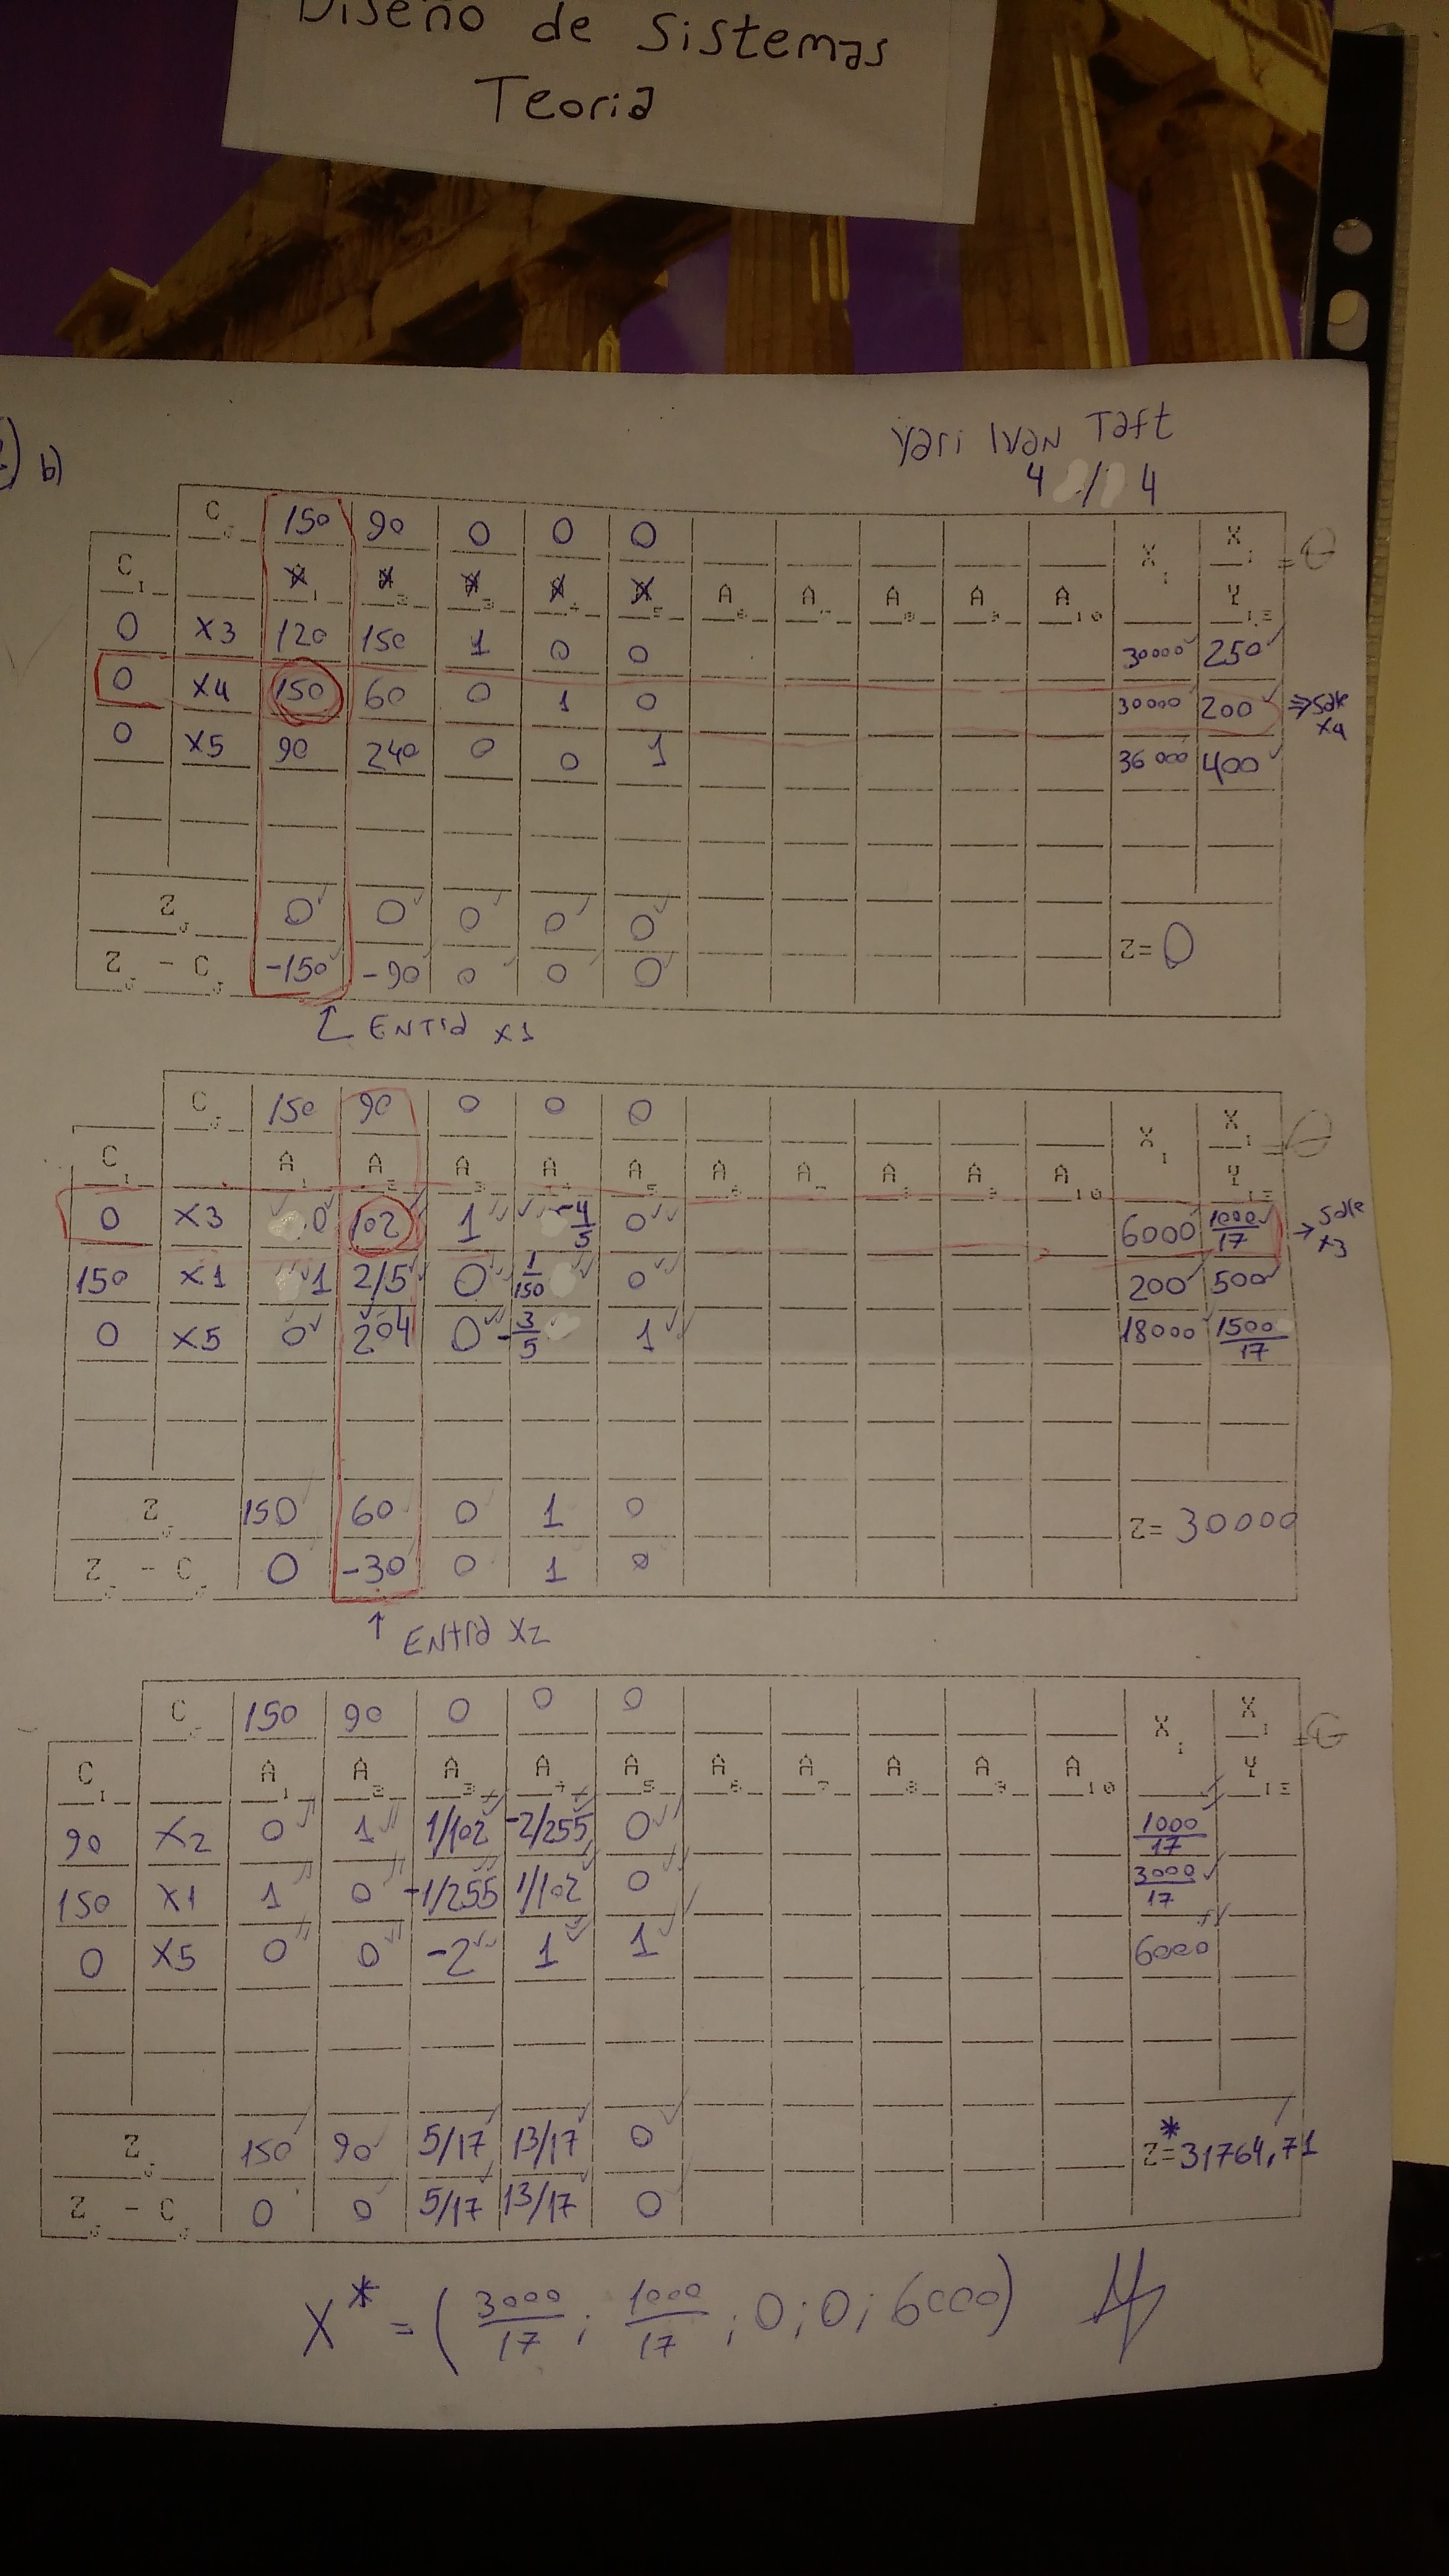 Diseño de Sistemas
Teoria
Yari Ivan Taft
b)
4 / 4
C J 150 90 0 0 0
C I X 1 X 2 X 3 X 4 X 5 A 6 A 7 A 8 A 9 A 10 X I X I / Y IE = θ
0 X3 120 150 1 0 0 30000 250
0 X4 150 60 0 1 0 30000 200 ⇒ Sale x4
0 X5 90 240 0 0 1 36000 400
Z J 0 0 0 0 0
Z J - C J -150 -90 0 0 0 Z= 0
↑ Entra x1
C J 150 90 0 0 0
C I A 1 A 2 A 3 A 4 A 5 A 6 A 7 A 8 A 9 A 10 X I X I / Y IE = θ
0 X3 0 102 1 -4/5 0 6000 1000/17 → Sale x3
150 X1 1 2/5 0 1/150 0 200 500
0 X5 0 204 0 -3/5 1 18000 1500/17
Z J 150 60 0 1 0 Z= 30000
Z J - C J 0 -30 0 1 0
↑ Entra x2
C J 150 90 0 0 0
C I A 1 A 2 A 3 A 4 A 5 A 6 A 7 A 8 A 9 A 10 X I X I / Y IE = θ
90 X2 0 1 1/102 -2/255 0 1000/17
150 X1 1 0 -1/255 1/102 0 3000/17
0 X5 0 0 -2 1 1 6000
Z J 150 90 5/17 13/17 0 Z*= 31764,71
Z J - C J 0 0 5/17 13/17 0
X* = (3000/17 ; 1000/17 ; 0; 0; 6000)